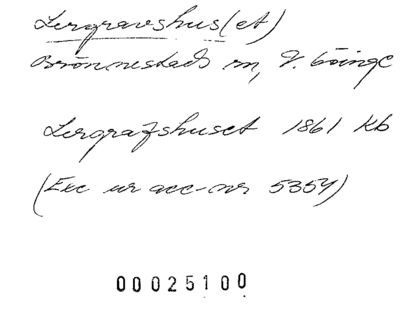 Lergravshus(et)
Brönnestads sn, V. Göinge
Lergrafshuset 1861 Kb
(Exc ur acc-nr 5354)
00025100